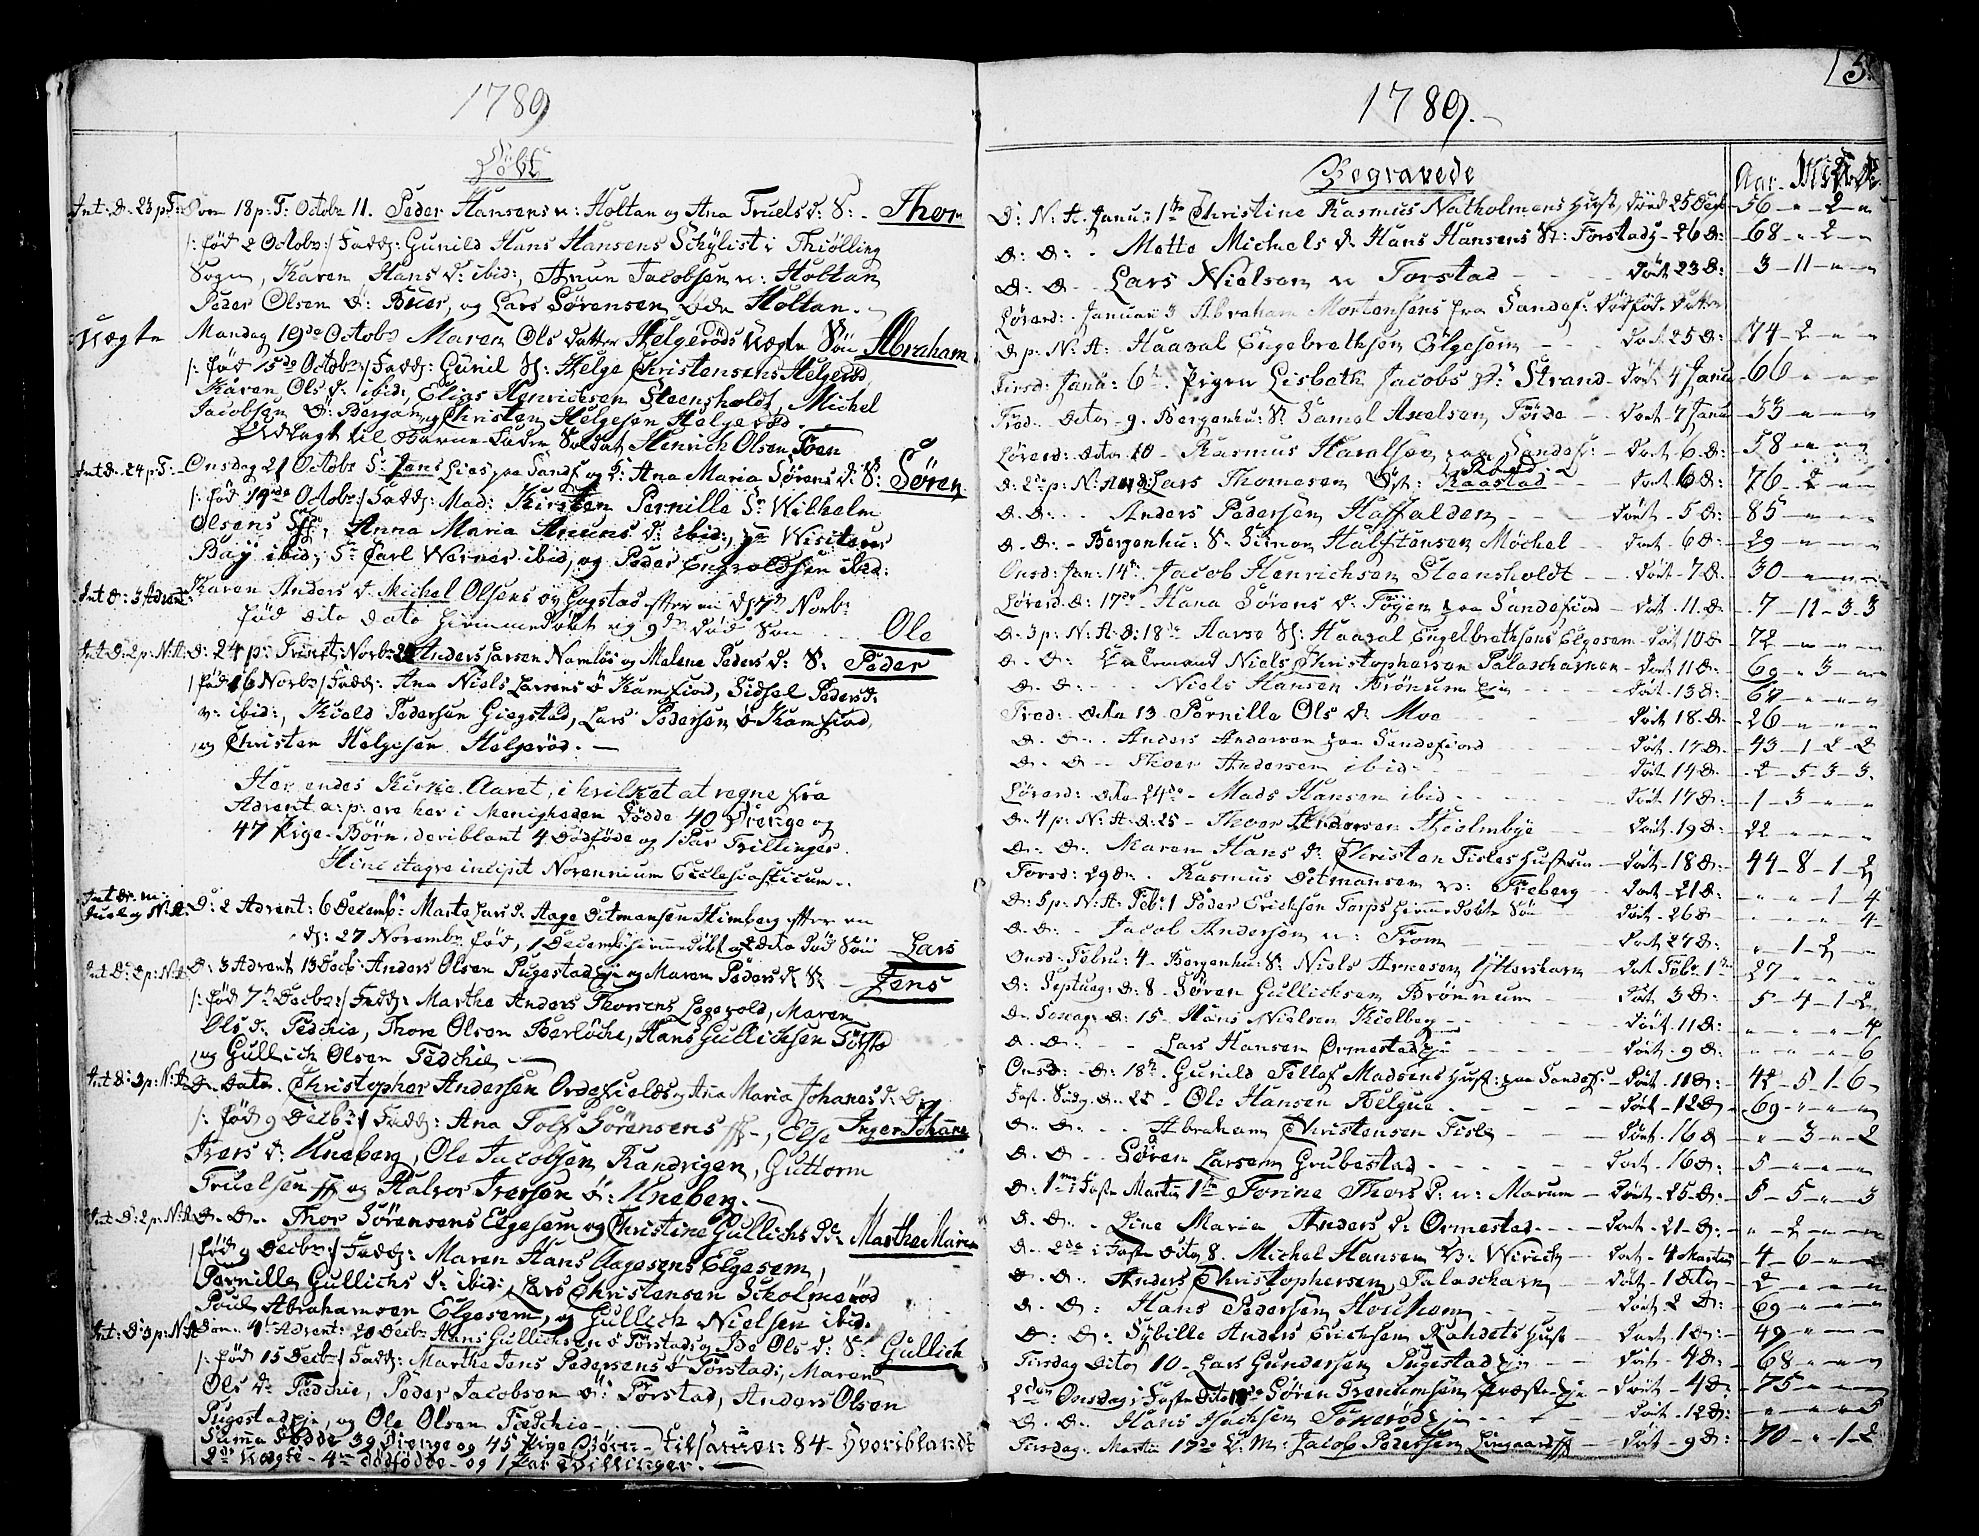 1789
Döbt
Int: D. 23 p: T: Dom 18 p: T: Octobr 11. Peder Hansens n: Holtan og Ana Truels d: S: Thor
/: fød 2 Octobr :/ Fadd: Gunild Hans Hansens i Thiølling
Sogn, Karen Hans d: ibid:, Anun Jacobsen n: Holtan
Peder Olsen Ø: Buer, og Lars Sørensen Holtan.
Uægte Mandag 19de Octobr Maren Ols datter Helgerøds Uægte Sön Abraham
/: fød 15de Octobr :/ Fadd: Gunil H: Helge Christensens Helgerød
Karen Ols d: ibid:, Elias Henrichsen Steensholdt, Michel
Jacobsen Ø: Bergan, og Christen Helgesen Helgerød.
Udlagt til Barne Fader Soldat Henrich Olsen Foen
Int: D: 24 p: T: Onsdag 21 Octobr S: Jens Lies paa Sandf og Ana Maria Sørens d: S: Søren
/: fød 19de Octobr :/ Fadd: Mad: Kirsten Pernille Sr Wilhelm
Olsens, Anna Maria Anuns d: ibid:,
Baÿ ibid; Sr Carl Wernes ibid, og Peder Engvoldsen ibid:
Int D: 3 Advent: Karen Anders d. Michel Olsens Ø Gogstad efter en d: 7de Novbr
fød dito dato hiemmedøbt og 9de död Sön Ole
Int: D: 2 p: N: A: D: 24 p: Trinit: Novbr: Anders Larsen Namløs og Malene Peders d: S: Peder
/: fød 16 Novbr :/ Fadd: Ana Niels Larsens Ø Kamfiord, Sidsel Peders d:
n: ibid:, Kield Pedersen Giegstad, Lars Pedersen Ø Kamfiord,
og Christen Helgesen Helgerød.
Her endes Kirke-Aaret, i hvilket at regne fra
Advent a: p: ere her i Menigheden Födde 40 Drenge og
47 Pige-Börn, deriblant 4 Dödföde og 1 Par Tvillinger.
Hinc itaqve incipit Novennium Ecclesiasticum.
Int: D: m:
Juul og N: A: D: 2 Advent: 6 Decembr Marte Lars d. Aage Ditmansen Himberg efter en
d: 27 Novembr fød, 1 Decembr hiemmedøbt og 2 dito død Sön Lars
Int: D: 2 p: N: A: D: 3 Advent 13 Decbr: Anders Olsen Pugestad eje og Maren Peders d: S: Jens
/: fød 7de Decbr :/ Fadd: Marthe Anders Thorsens, Maren
Ols d: Fedchie, Thore Olsen Berløche, Hans Gullichsen Torstad
og Gullich Olsen Fedchie
Int: D: 3 p: N: A: D. Dato. Christopher Andersen Ordefields og Ana Maria Johanes d: D:
/: fød 9 Decbr :/ Fadd: Ana Tolf Sörensens, Else Inger Johane
Ivers d: Uneberg, Ole Jacobsen Randvigen, Guttorm
Truelsen og Halvor Iversen Ø: Uneberg.
Int: D: 2 p: N: A: D. D. Thor Sørensens Elgesem og Christine Gullichs D: Marthe Maria
/: fød 9 Decbr :/ Fadd: Maren Hans Aagesens Elgesem,
Pernille Gullichs d: ibid:, Lars Christensen Skolmerød
Poul Abrahamsen Elgesem, og Gullich Nielsen ibid.
Int: D: 3 p: N: A: Dom: 4 Advent: 20 Decbr Hans Gullichsens Ø Torstad og Bo Ols d: S: Gullich
/: fød 15 Decbr :/ Fadd: Marthe Jens Pedersens Ø Torstad, Maren
Ols d: Fedchie, Peder Jacobsen Ø: Torstad, Anders Olsen
Pugestad eje, og Ole Olsen Fedchie
Suma Födde 39 Drenge og 45 Pige Börn - tilsamen: 84 - Hvoriblandt
2de Uægte - 4re dödfödde - og 1 Par Tvillinger.
5.
1789.
Begravede Aar. M: U: D:
D: N: A. Janu: 1te Christine Rasmus Natholmens Hust, Död 25 Decb 56 - " - 2 - "
D: D: Mette Michaels d. Hans Hansens H: Torstad - 26 D: 68 - " 2 - "
D. D. Lars Nielsen n Torstad Död 23 D: 3 - 11 - " - "
Lørerd: Januari 3 Abraham Mortensens fra Sandef: dödfød Datter
D p: N: A: Haaval Engebrethsen Elgesem Död 25 D: 74 - 2 - " - "
Tirsd: Janu: 6te Pigen Lisbeth Jacobs d: Strand Död 4 Janu 66 " - " - "
Fred: dito 9. Bergenhu: S: Samel Axelsen Förde Död 7 Janu 33 - " - " - "
Lørerd: dito 10 Rasmus Haralsen paa Sandef: Död 6 D: 58 - " - " - "
D: 2 p: N: A: Lars Thomesen Öst: Raastad Död 6 D: 76 - 2 - " - "
D. D: Anders Pedersen Haffalden Död 5 D: 85 - " - " - "
D. D: Bergenhu: S: Simon Halftensen Möchel Död 6 D: 29 - " - " - "
Onsd: Jan: 14de Jacob Henrichsen Steensholdt Död 7 D: 30 - " - " - "
Lørerd: D: 17de Hana Sørens d: Föyen paa Sandefiord Död 11. D: 7 - 11 - 3 - 3
D: 3 p: N: A: D: 18de Aarse H: Haaval Engelbrethsens Elgesem Död 10 D: 72 - " - " - "
D. D: Niels Christophersen Palaschasven Död 11 D: 69 - " 3 - "
D. D: Niels Hansen Brönum eje Död 13 D: 64 - " - " - "
Tred: dito 13 Pernille Ols d: Moe Död 18. D: 26 - " - " - "
D. D. Anders Andersen paa Sandefiord Död 17 D: 43 - 1 - 2 - 2
D. D. Thor Andersen ibid. Död 14 D: 2 - 5 - 3 - 3
Lørerd: dito 24de Mads Hansen ibid Död 17 D: 1 - 3 - " - "
D: 4 p: N: A: D: 25 - Thor Andersen Hiolmbye Död 19 D: 22 - " - " - "
D. D: Maren Hans d: Christen Fisles Hustrue Död 18 D: 44 - 8 - 1 - 2
Torsd: 29 D: Rasmus Ditmansen Freberg Död 21 D: " - " - 1 - 4
D: 5 p: N: A: Feb: 1 Peder Erichsen Torps hiemmedöbte Sön Död 26 D: " - " - " - 4
D. D: Jacob Andersen n: From Död 27 D: " - 1 - 2 - "
Onsd: Febru: 4 - Bergenhu: S: Niels Arnesen Död Febr. 1te 27 - " - "
D: Septuag: D: 8 Søren Gullichsen Brönnum Död 3 D: 5 - 4 - 1 - 2
D: Sexag: D: 15 - Hans Nielsen Kielberg Död 11 D: " - " - " - 4
D. D: Lars Hansen Ormestad eje Död 9 D: " - " - " - 6
Onsd: D: 18de Gunild Tellef Madsens Hust: paa Sandef: Död 11 D: 42 - 5 - 1 - 6
Fast. Sŭdg. D. 22 Ole Hansen Belgen Död 12 D: 69 - " - " - "
D. D: Abraham Christensen Fisle Död 16 D: " - 3 - " - 2
D. D. Søren Larsen Grubestad Död 16 D: 5 - " - " - "
D: 1me i Faste Martii 1te Torine Thors d: n: Marum Död 25 D: 5 - 5 - " - 3
D. D: Line Maria Anders d: Ormestad Död 21 D: " - 2 - " - "
D. 2de i Faste dito 8. Michel Hansen Virich Död 4 Martii 4 - 6 - " - "
D. D: Anders Christophersen Palaschasven Död 1 dito 2 - " - " - "
D. D: Hans Pedersen Hou Död 2 D: 69 - " - " - "
D: D: Sybille Anders Erichsen Rahdets Hust Död 1 D: 49 - " - " - "
Tirsdag dito 10 - Lars Gundersen Pugestad eje Död 4 D: 68 - " - " - "
2den Onsdag i Faste dito Søren Præste eje Död 4 D: 75 - " - " - "
D. D: Hans Isachsen Tokerød eje Död 12 D: " - " - " - 5
Tirsdag: Martii 17de Jacob Pedersen Död 9 D: 70 - " - 1 - 2